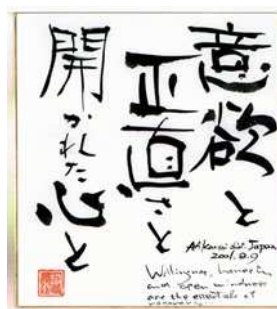 意欲と
正直さと
開かれた心と
AA Kansai Japan
2001.8.9
Willingness, honesty
and open mindness
are the essentials of